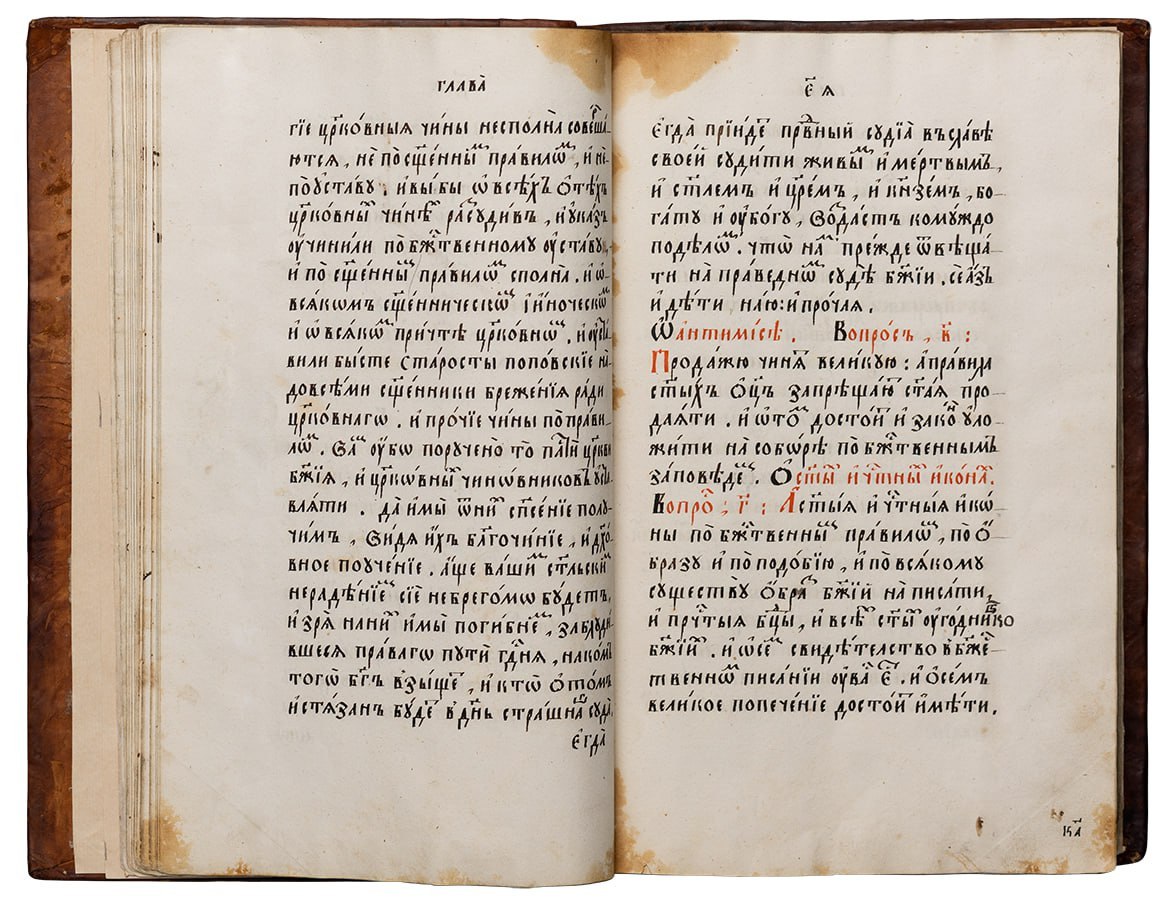 глава̀
гїе цр҃ко́вныѧ чи́ны несполна̀ соверша́-
ются, не по сщ҃е́нныⷨ пра́вилѡⷨ, и не-
по уста́ву. и вы̀ бы ѡ всѣ́хъ ѻ тѣ́хъ
цр҃ко́вныⷯ чинѣⷯ разсуди́въ, и ука́зъ
ѹчини́ли по бж҃е́ственному ѹста́ву,
и по сщ҃е́нныⷨ пра́вилѡⷨ сполна̀. и ѡ-
всѧ́комъ сщ҃е́нническѡⷨ и и́ноческѡⷨ
и ѡ всѧ́кѡⷨ при́чтѣ цр҃ко́внѡⷨ. и ѹста́-
вили бы́сте ста́росты попо́вскїе на-
до всѣ́ми сщ҃е́нники бреже́нїѧ ра́ди
цр҃ко́внагѡ. и про́чїе чи́ны по пра́ви-
лѡⷨ. ваⷨ ѹ́бо пору́чено то̀ па́сти цр҃кви
бж҃їѧ, и цр҃ко́вныⷯ чино́вниковъ ѹста-
влѧ́ти. да и мы̀ ѿ ни́ⷯ спⷭ҇е́нїе полу-
чи́мъ, ви́дѧ и́хъ бл҃гочи́нїе, и дх҃о́-
вное поуче́нїе. а́ще ва́шиⷨ ст҃льскиⷨ
нераде́нїеⷨ сїѐ небрего́мо бу́детъ,
и зрѧ̀ на ни́ⷯ и мы̀ поги́бнеⷨ, заблуди́-
вшесѧ пра́вагѡ путѝ гдⷭ҇нѧ, на ко́мъ
тогѡ̀ бг҃ъ взы́щеⷮ, и ктѡ̀ ѻ то́мъ
и́стѧзанъ бу́деⷮ в дн҃ь стра́шнагѡ суда̀.
е҆гда̀
е҃ ѧ
Е҆гда̀ прїи́деⷮ пра́вⷣный судїа̀ въ сла́вѣ
свое́й суди́ти живы́ⷨ и ме́ртвымъ,
и ст҃лемъ и цр҃е́мъ, и кнѧзе́мъ, бо-
га́ту и ѹбо́гу, возда́стъ кому́ждо
по дѣлѡⷨ. чтѡ̀ наⷨ пре́жде ѿвѣща́-
ти на пра́веднѡⷨ судѣ̀ бж҃їи. се а́зъ
и дѣ́ти наю: и про́чаѧ.
Ѡ антими́сѣ. Вопро́съ, в҃:
Прода́жю чинѧⷮ вели́кую: а пра́вила
ст҃ы́хъ ѻц҃ъ запреща́юⷮ ст҃а́ѧ про-
даѧ́ти. и ѡ то́ⷨ досто́иⷮ и зако́нъ ѹло-
жи́ти на собо́рѣ по бж҃е́ственнымъ
за́повѣдеⷨ. Ѻ ст҃ы́ⷯ и чⷭ҇тны́ⷯ ико́наⷯ.
Вопро́ⷭ, г҃: А ст҃ы́ѧ и чⷭ҇тны́ѧ ико́-
ны по бж҃е́ственныⷨ пра́вилѡⷨ, по ѻ́-
бразу и по подо́бїю, и по всѧ́кому
существу̀ ѻ́браⷥ бж҃їй написа́ти,
и пречⷭ҇тыѧ бц҃ы, и всѣⷯ ст҃ы́ⷯ ѹго́дникоⷡ
бж҃їиⷯ. и ѡ се́ⷨ свидѣ́тельство в бж҃е́-
ственнѡⷨ писа́нїи ѹ ва́съ е҆́сть. и ѻ се́мъ
вели́кое попече́нїе досто́иⷮ имѣ́ти.
к҃а